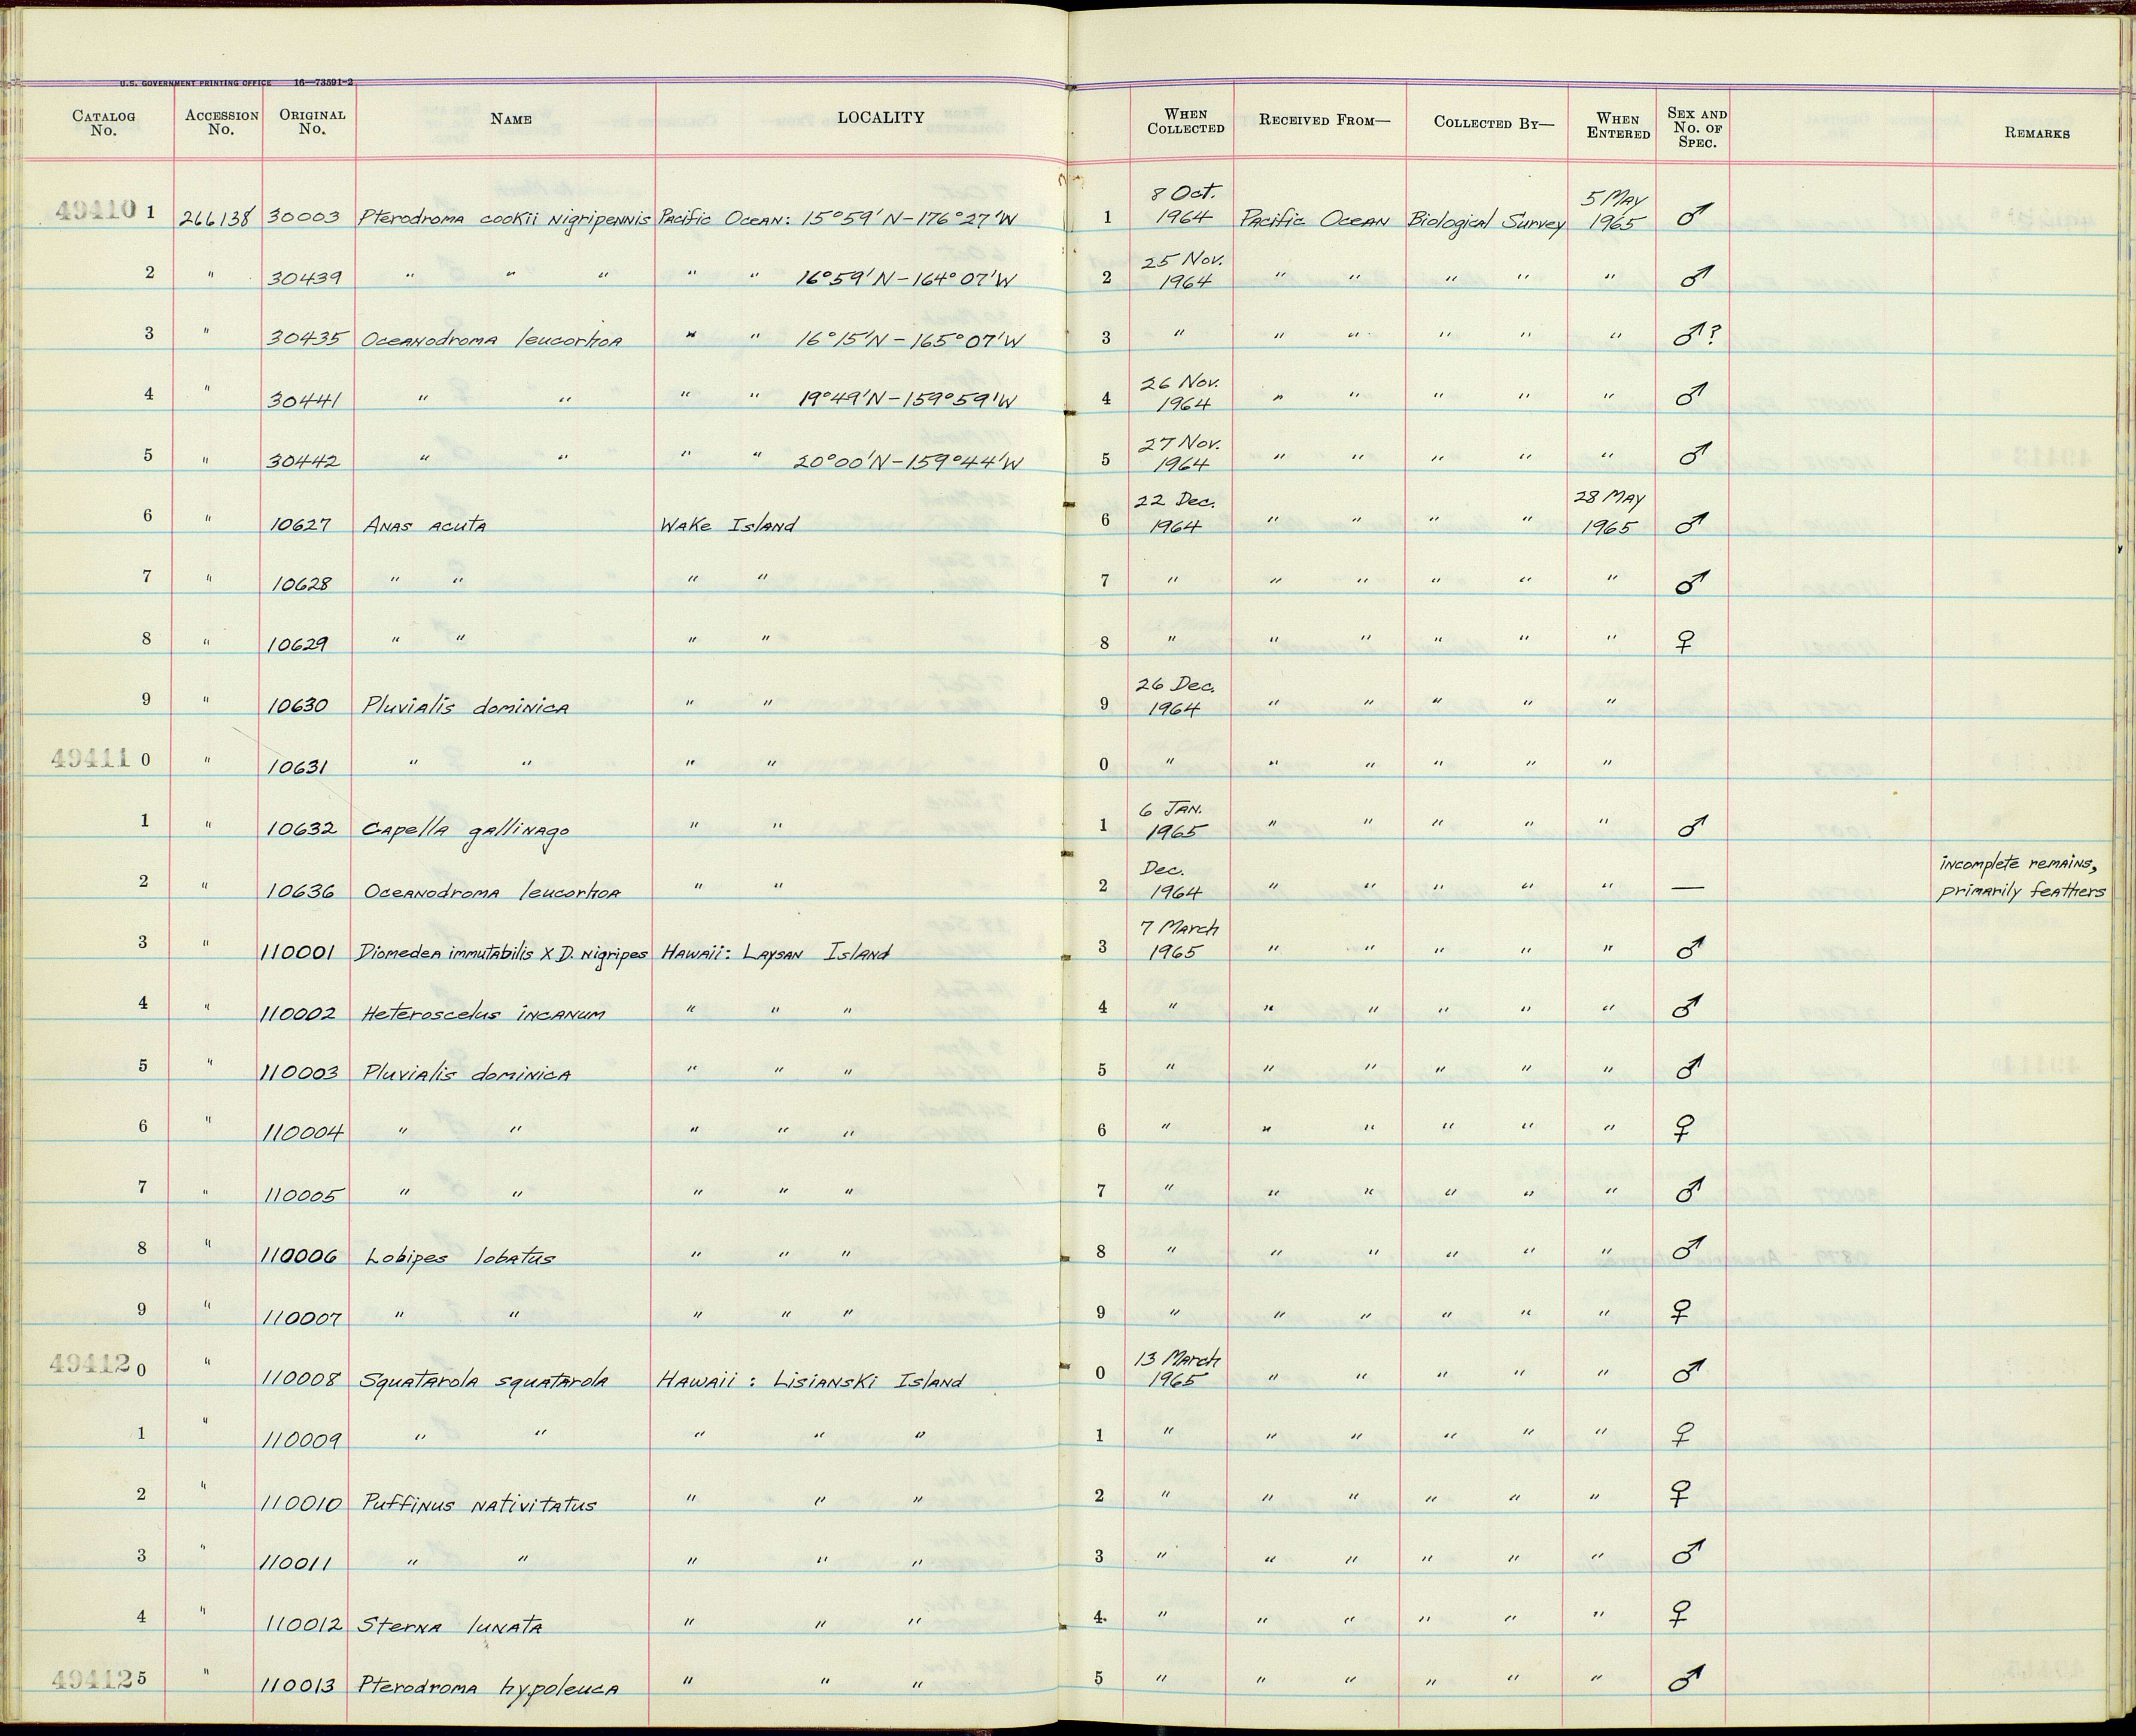 U.S. GOVERNMENT PRINTING OFFICE 16—73591-2
CATALOG No. ACCESSION No. ORIGINAL No. NAME LOCALITY WHEN COLLECTED RECEIVED FROM— COLLECTED BY— WHEN ENTERED SEX AND No. OF SPEC. REMARKS
49410 1 266138 30003 Pterodroma cookii nigripennis Pacific Ocean: 15°59'N-176°27'W 1 8 Oct. 1964 Pacific Ocean Biological Survey 5 May 1965 ♂
2 " 30439 " " " " " 16°59'N-164°07'W 2 25 Nov. 1964 " " " " " ♂
3 " 30435 Oceanodroma leucorhoa " " 16°15'N-165°07'W 3 " " " " " " ♂?
4 " 30441 " " " " 19°49'N-159°59'W 4 26 Nov. 1964 " " " " " ♂
5 " 30442 " " " " 20°00'N-159°44'W 5 27 Nov. 1964 " " " " " ♂
6 " 10627 Anas acuta Wake Island 6 22 Dec. 1964 " " " " 28 May 1965 ♂
7 " 10628 " " " " 7 " " " " " " ♂
8 " 10629 " " " " 8 " " " " " " ♀
9 " 10630 Pluvialis dominica " " 9 26 Dec. 1964 " " " " "
49411 0 " 10631 " " " " 0 " " " " " "
1 " 10632 Capella gallinago " " 1 6 Jan. 1965 " " " " " ♂
2 " 10636 Oceanodroma leucorhoa " " 2 Dec. 1964 " " " " " — incomplete remains, primarily feathers
3 " 110001 Diomedea immutabilis X D. nigripes Hawaii: Laysan Island 3 7 March 1965 " " " " " ♂
4 " 110002 Heteroscelus incanum " " " 4 " " " " " " ♂
5 " 110003 Pluvialis dominica " " " 5 " " " " " " ♂
6 " 110004 " " " " " 6 " " " " " " ♀
7 " 110005 " " " " " 7 " " " " " " ♂
8 " 110006 Lobipes lobatus " " " 8 " " " " " " ♂
9 " 110007 " " " " " 9 " " " " " " ♀
49412 0 " 110008 Squatarola squatarola Hawaii : Lisianski Island 0 13 March 1965 " " " " " ♂
1 " 110009 " " " " " 1 " " " " " " ♀
2 " 110010 Puffinus nativitatus " " " 2 " " " " " " ♀
3 " 110011 " " " " " 3 " " " " " " ♂
4 " 110012 Sterna lunata " " " 4 " " " " " " ♀
49412 5 " 110013 Pterodroma hypoleuca " " " 5 " " " " " " ♂